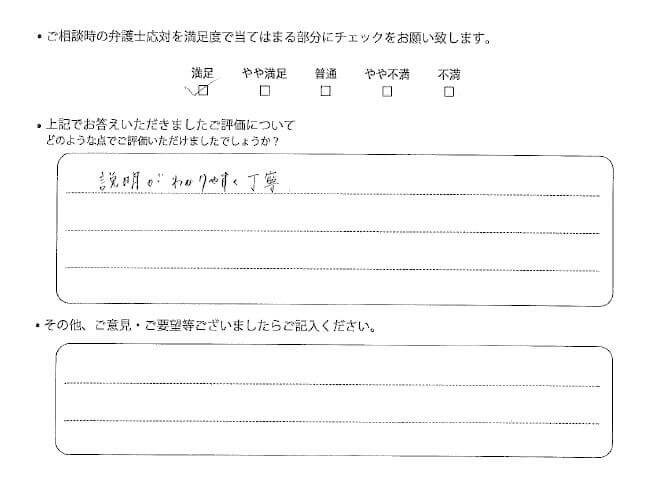 • ご相談時の弁護士応対を満足度で当てはまる部分にチェックをお願い致します。
満足 やや満足 普通 やや不満 不満
• 上記でお答えいただきましたご評価について
どのような点でご評価いただけましたでしょうか？
説明がわかりやすく丁寧
• その他、ご意見・ご要望等ございましたらご記入ください。